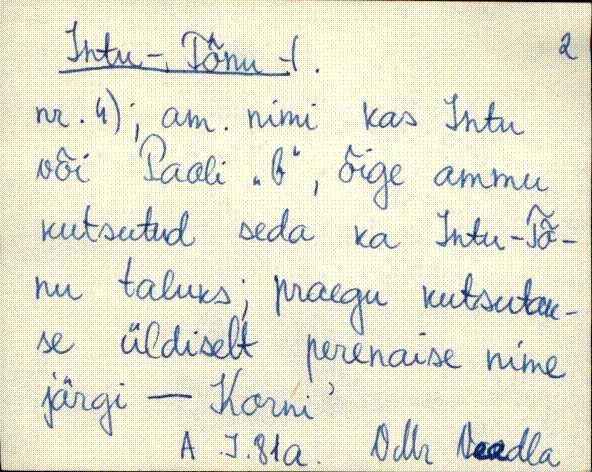 Intu-, Tõnu -t. 2
nr. 4); am. nimi kas Intu
või Paali „b“, õige ammu
kutsutud seda ka Intu-Tõ-
nu taluks; praegu kutsutak-
se üldiselt perenaise nime
järgi — Korni'
A. J. 81a. Vdlr Veadla